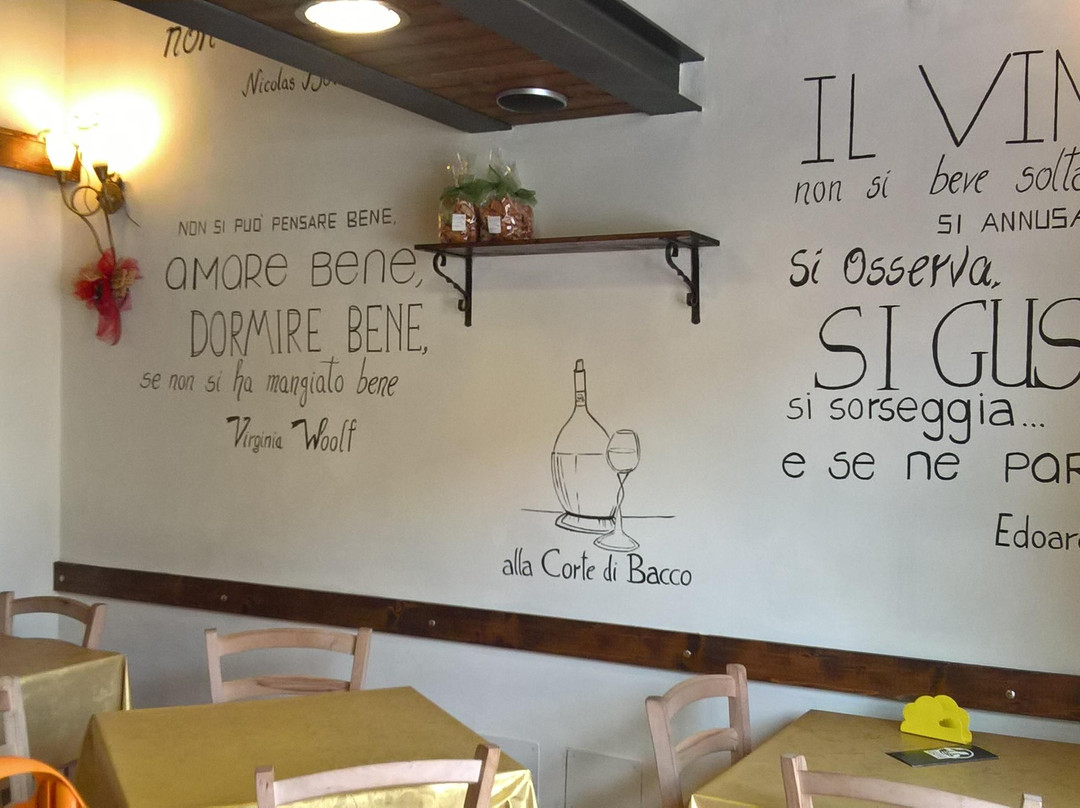 non
Nicolas
NON SI PUÒ PENSARE BENE,
AMARE BENE,
DORMIRE BENE,
se non si ha mangiato bene
Virginia Woolf
alla Corte di Bacco
IL VIN
non si beve solta
SI ANNUSA
si osserva,
SI GUS
si sorseggia...
e se ne par
Edoar